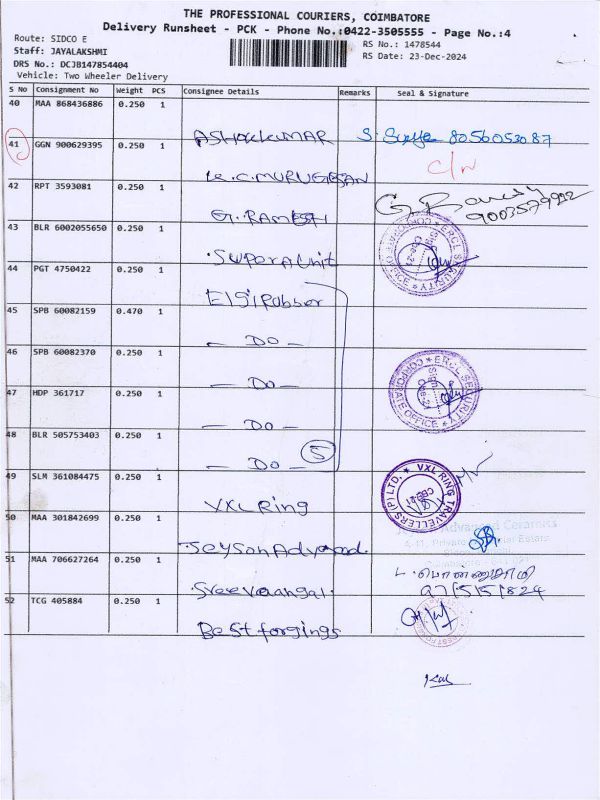 THE PROFESSIONAL COURIERS, COIMBATORE
Delivery Runsheet - PCK - Phone No.:0422-3505555 - Page No.:4
Route: SIDCO E
Staff: JAYALAKSHMI
DRS No.: DCJB147854404
Vehicle: Two Wheeler Delivery
RS No.: 1478544
RS Date: 23-Dec-2024
S No Consignment No Weight PCS Consignee Details Remarks Seal & Signature
40 MAA 868436886 0.250 1
AShokkUMAR S. Surya 8056053087
41 GGN 900629395 0.250 1
K.C.MURUGESAN C/N
42 RPT 3593081 0.250 1
G.RAMESH 9003579922
43 BLR 6002055650 0.250 1
Supora Unit
44 PGT 4750422 0.250 1
Elgi Rubber
45 SPB 60082159 0.470 1
— DO —
46 SPB 60082370 0.250 1
— DO —
47 HDP 361717 0.250 1
— DO —
48 BLR 505753403 0.250 1
— DO — 5
49 SLM 361084475 0.250 1
VXL Ring
VXL RING TRAVELLERS (P) LTD.
50 MAA 301842699 0.250 1
Advanced Ceramics
51 MAA 706627264 0.250 1
L. பொன்னுசாமி
52 TCG 405884 0.250 1
Best forgings